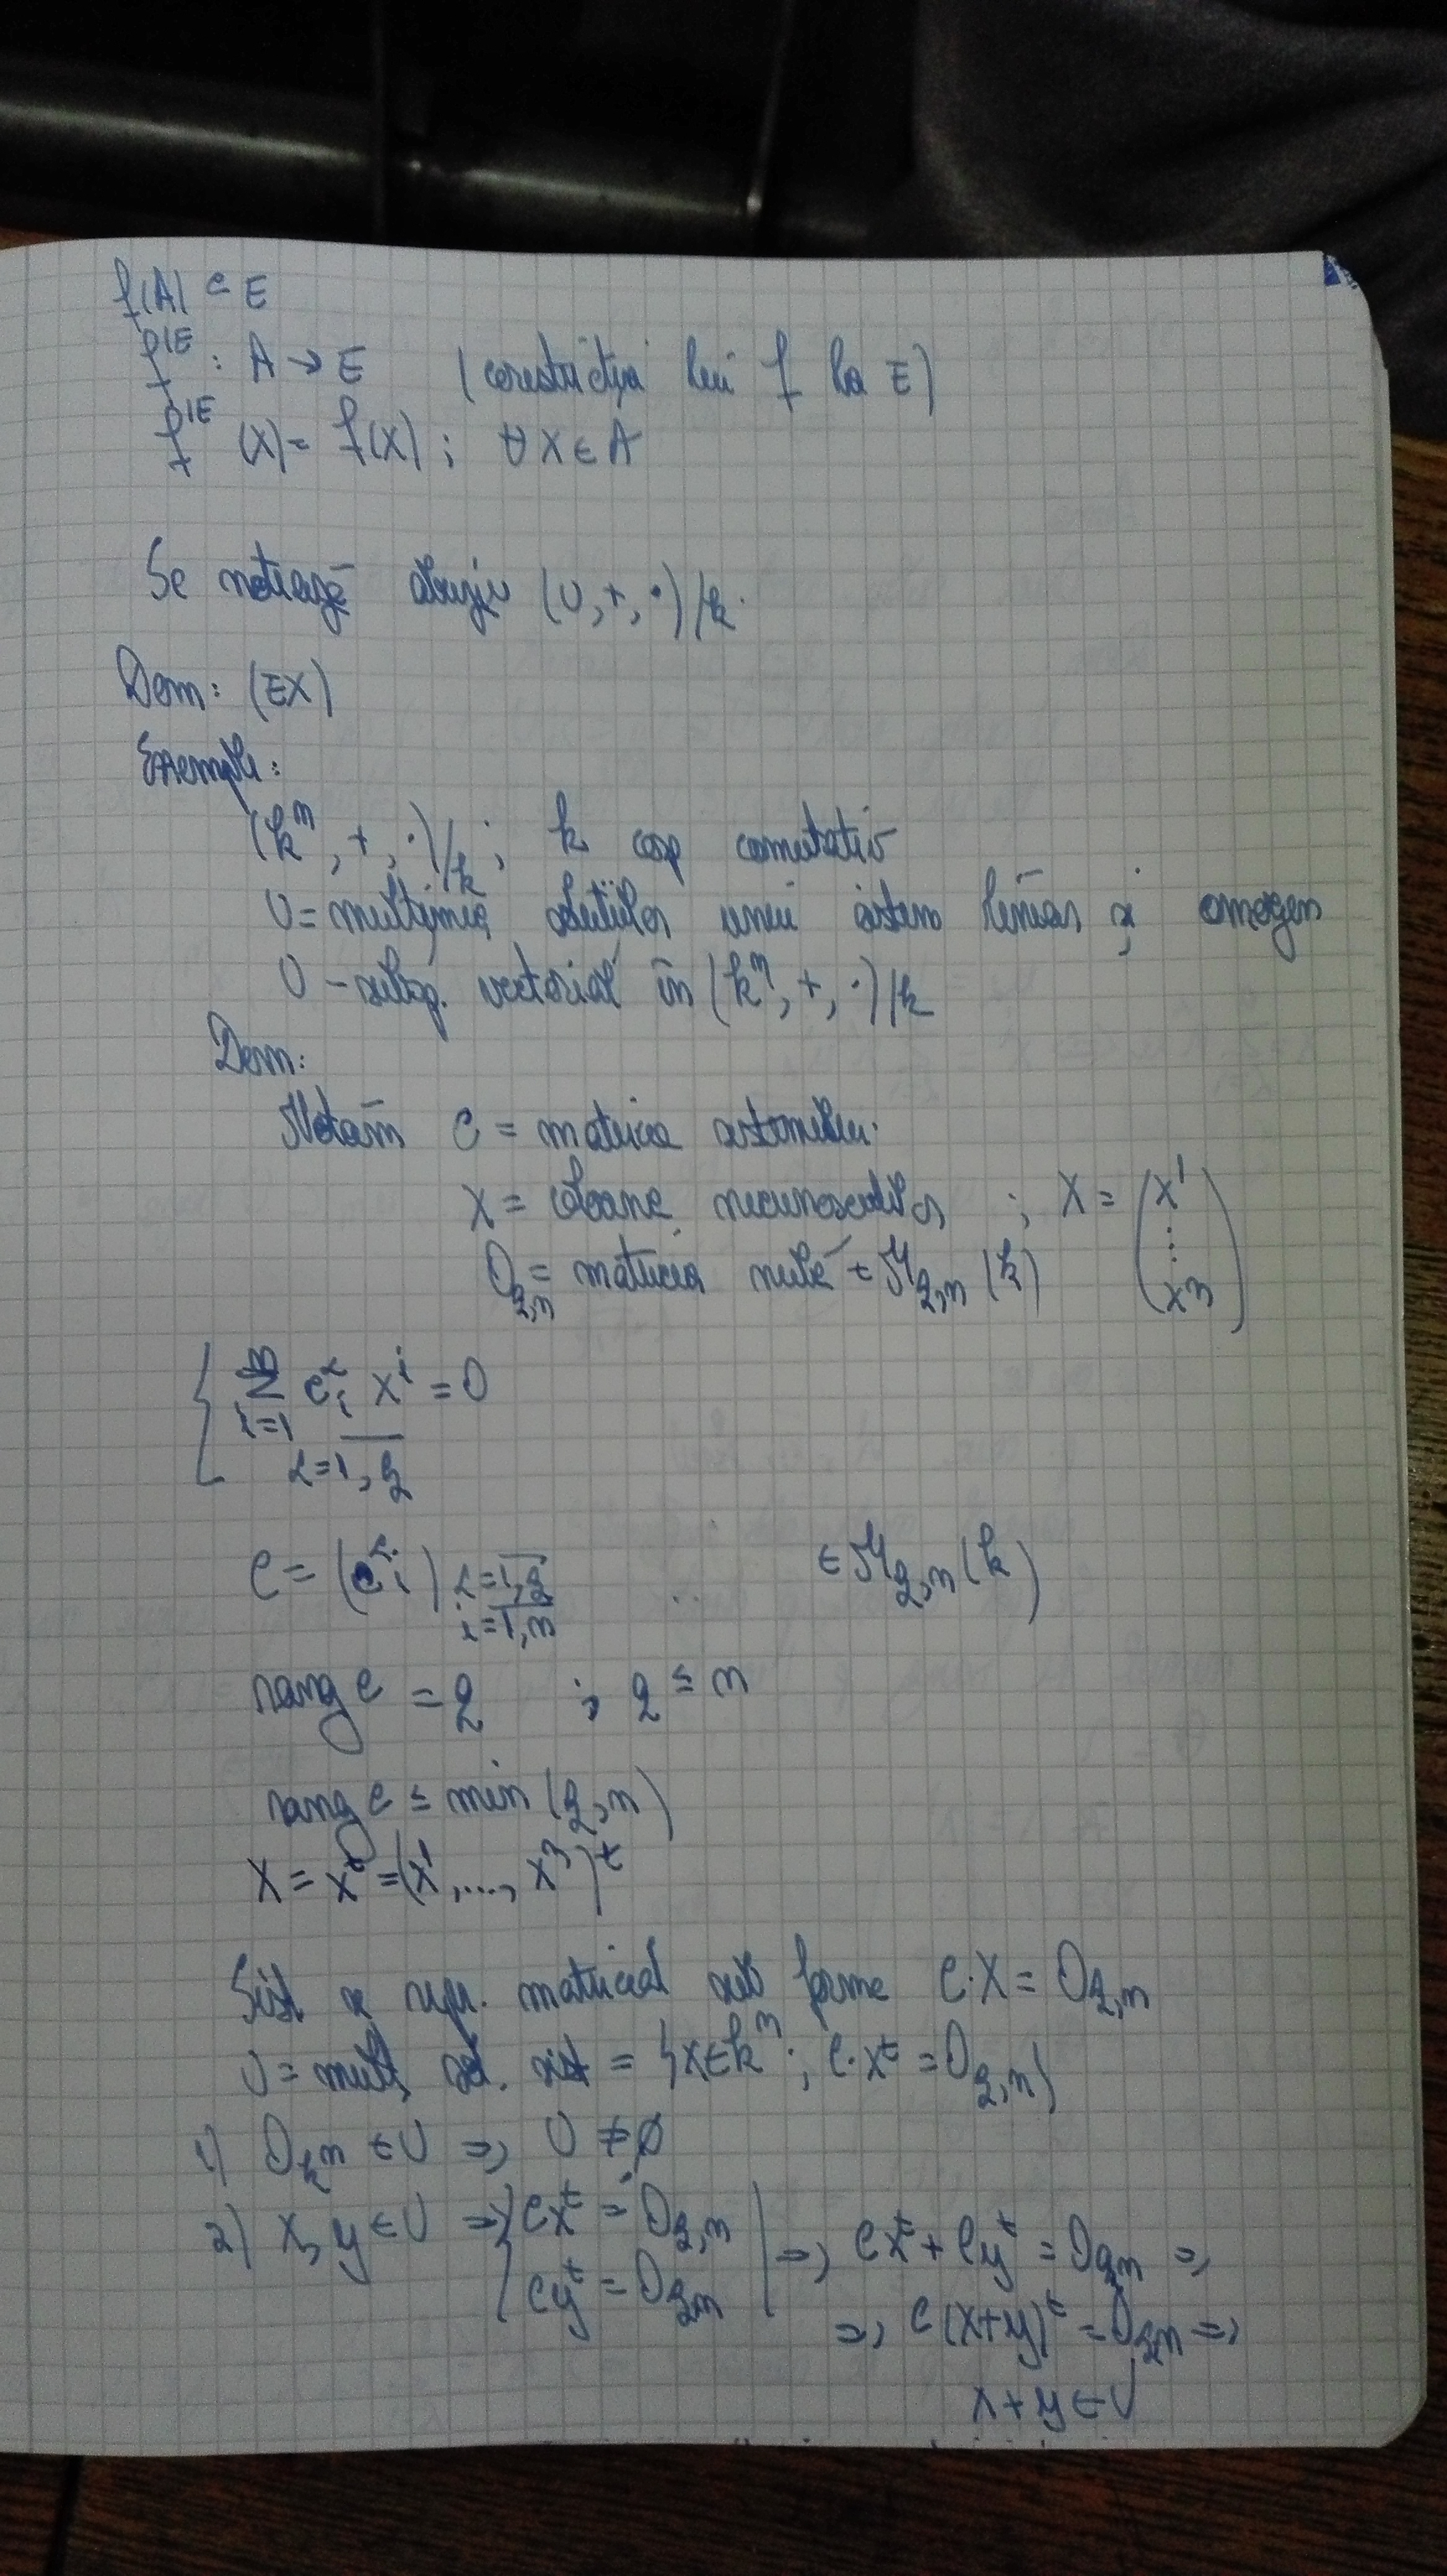 f(A) ⊂ E
f^{|E} : A → E (corestricția lui f la E)
f^{|E} (x) = f(x) ; ∀ x ∈ A
Se notează abuziv (U, +, ·)/k.
Dem: (EX)
Exemplu:
(k^n, +, ·)/k ; k corp comutativ
U = mulțimea soluțiilor unui sistem liniar și omogen
U - subsp. vectorial în (k^n, +, ·)/k
Dem:
Notăm C = matricea sistemului.
X = coloana necunoscutelor ; X = (x^1 ⋮ x^n)
O_{q,n} = matricea nulă ∈ M_{q,n} (k)
{ Σ_{i=1}^{n} c^α_i x^i = 0
α = \overline{1, q}
C = (c^α_i) α = \overline{1, q} ∈ M_{q,n} (k)
i = \overline{1, n}
rang C = q ; q ≤ n
rang C ≤ min (q, n)
X = x^t = (x^1, ..., x^n)^t
Sist. se repr. matricial sub forma C·X = O_{q,n}
U = mulț. sol. sist = {x ∈ k^n ; C·x^t = O_{q,n}}
1) O_{k^n} ∈ U ⇒ U ≠ ∅
2) x, y ∈ U ⇒ { Cx^t = O_{q,n} | ⇒ Cx^t + Cy^t = O_{q,n} ⇒
Cy^t = O_{q,n} ⇒ C(x+y)^t = O_{q,n} ⇒
x + y ∈ U